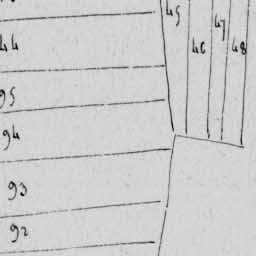 45
47
44
46
48
95
94
93
92